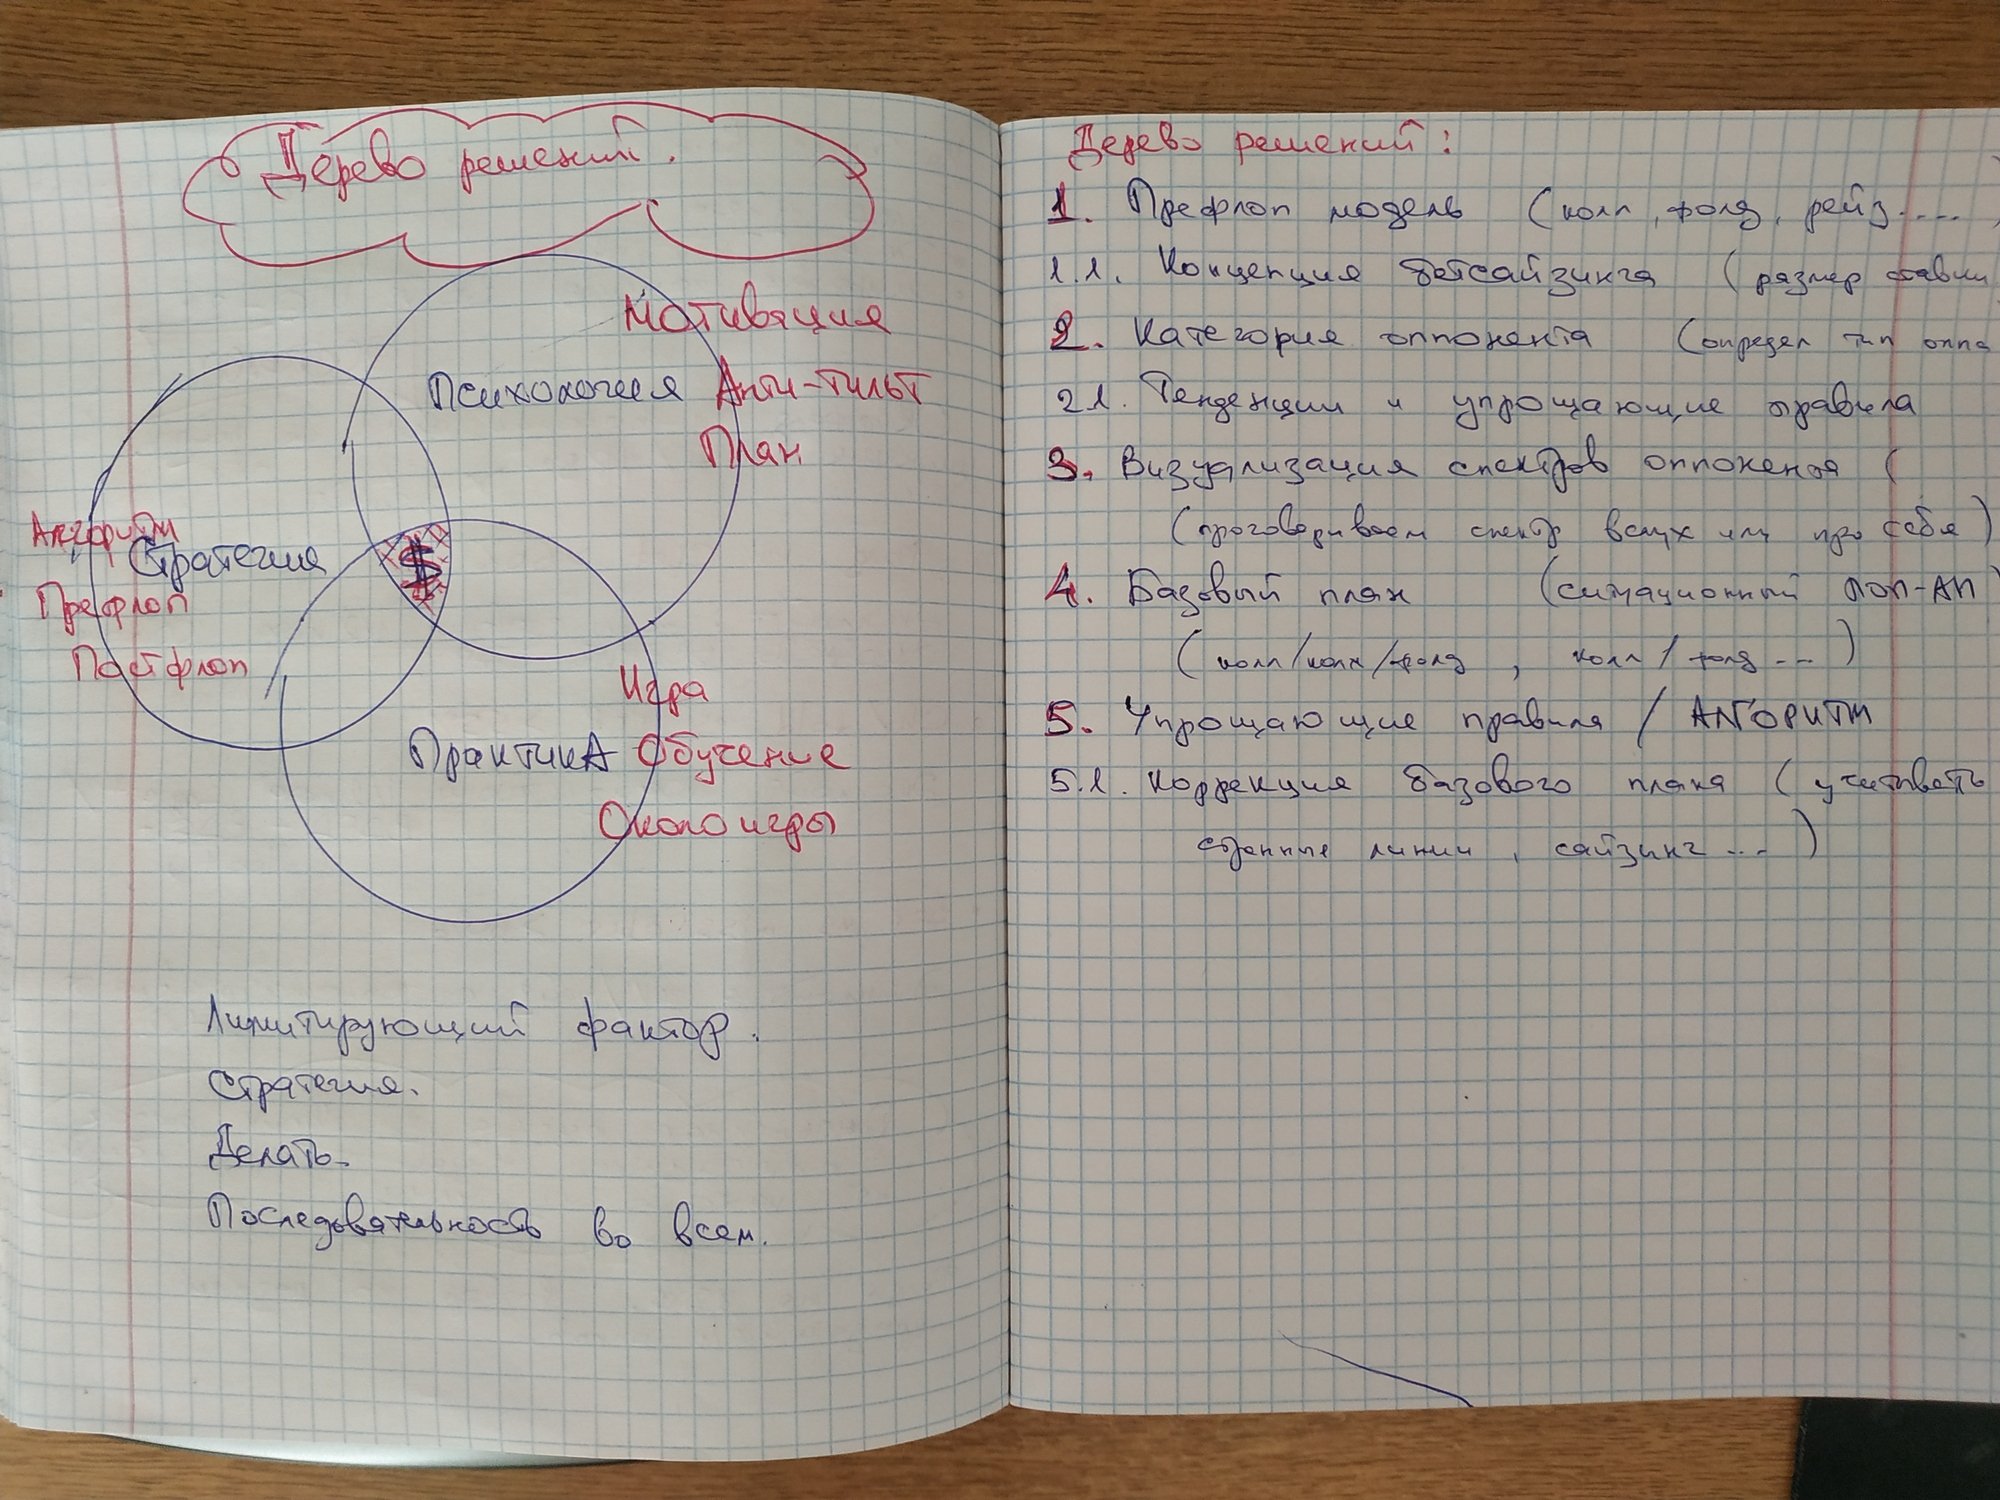 Дерево решений.
Мотивация
Психология Анти-тильт
План
Алгоритм
Стратегия
$
Префлоп
Постфлоп
Игра
Практика Обучение
Около игры
Лимитирующий фактор.
Стратегия.
Делать.
Последовательность во всем.
Дерево решений:
1. Префлоп модель (колл, фолд, рейз....
1.1. Концепция бетсайзинга (размер ставки
2. Категория оппонента (определ тип оппа
2.1. Тенденции и упрощающие правила
3. Визуализация спектров оппонента (
(проговариваем спектр вслух или про себя)
4. Базовый план (ситуационный ПОП-АП)
(колл/колл/фолд, колл/фолд...)
5. Упрощающие правила / АЛГОРИТМ
5.1. Коррекция базового плана (учитывать
странные линии, сайзинг...)